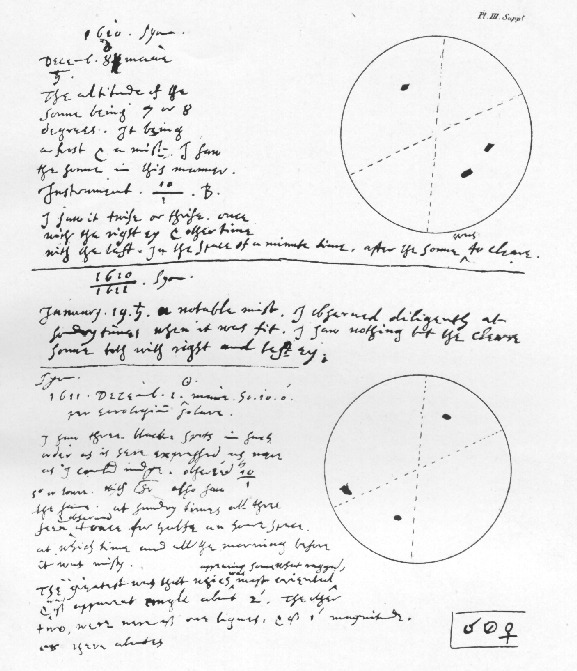 Pl. III. Suppl
1610. Syon.
Decemb. 8 mane
♄.
The altitude of the
sonne being 7 or 8
degrees. It being
a frost & a mist. I saw
the sonne in this manner.
Instrument. 10/1 . B.
I saw it twise or thrise. once
with the right ey & other time
with the left. In the space of a minute time, after the sonne was to cleare.
1610/1611 . Syon.
January. 19. ♄. a notable mist. I observed diligently at
sundry times when it was fit. I saw nothing but the cleare
sonne both with right and left ey.
Syon.
☉.
1611. Decemb. 1. mane. 10. 0.
per horologium Solare.
I saw three blacke spots in such
order as is here expressed as nere
as I could judge. observed 10/1
also saw
the same. at sundry times all three
seen observed at once for halfe an houre space.
at which time and all the morning before
it was misty.
appearing somewhat ragged,
The greatest was that which was most oriental
& of apparent angle about 2'. The other
two, were nere of one bignes, & of 1' magnitude.
or there aboutes
♂ ☉ ♀